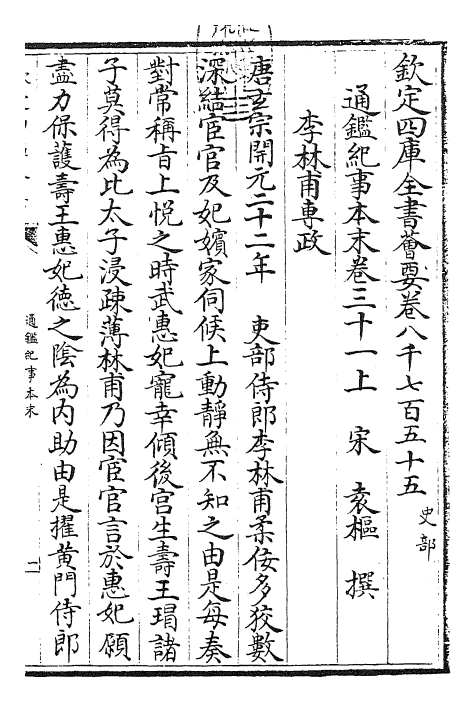 欽定四庫全書薈要卷八千七百五十五
史部
通鑑紀事本末卷三十一上　宋　袁樞　撰
李林甫專政
唐玄宗開元二十二年　吏部侍郎李林甫柔佞多狡數
深結宦官及妃嬪家伺候上動靜無不知之由是每奏
對常稱旨上悅之時武惠妃寵幸傾後宮生壽王瑁諸
子莫得為比太子浸疎薄林甫乃因宦官言於惠妃願
盡力保護壽王惠妃德之陰為內助由是擢黃門侍郎
通鑑紀事本末